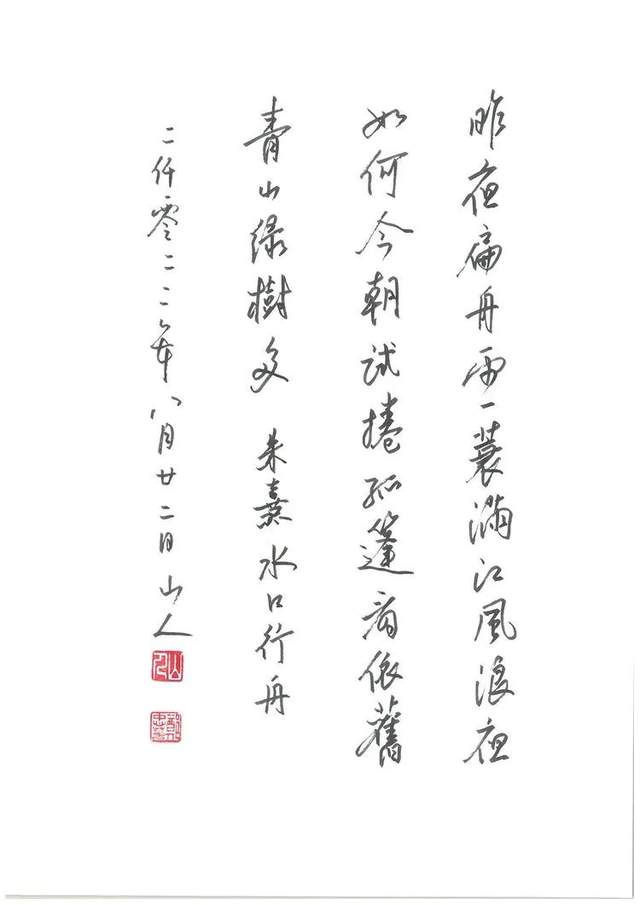 昨夜扁舟雨一蓑滿江風浪夜
如何今朝試捲孤篷看依舊
青山綠樹多 朱熹水口行舟
二仟零二二年八月廿二日山人
山人